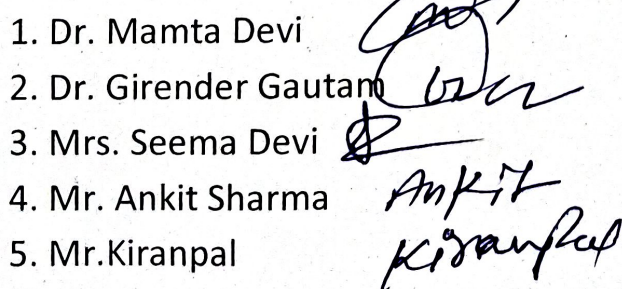 1. Dr. Mamta Devi
2. Dr. Girender Gautam
3. Mrs. Seema Devi
4. Mr. Ankit Sharma Ankit
5. Mr.Kiranpal Kiranpal